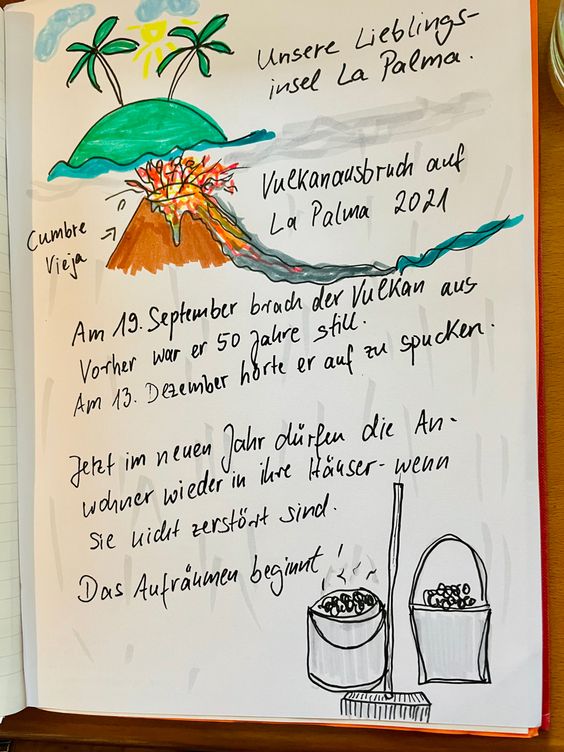 Unsere Lieblings-
insel La Palma.
Vulkanausbruch auf
La Palma 2021
Cumbre
Vieja
Am 19. September brach der Vulkan aus
Vorher war er 50 Jahre still.
Am 13. Dezember hörte er auf zu spucken.
Jetzt im neuen Jahr dürfen die An-
wohner wieder in ihre Häuser - wenn
sie nicht zerstört sind.
Das Aufräumen beginnt!